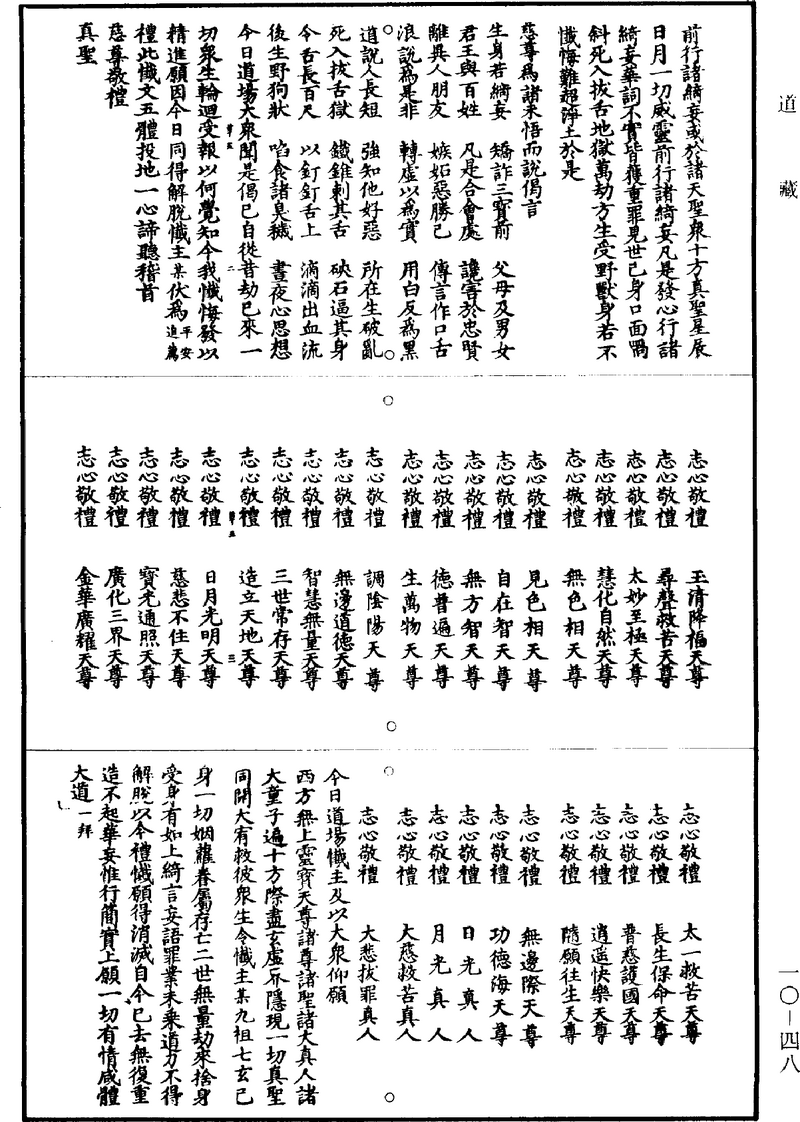 道藏
前行諸綺妄或於諸天聖衆十方真聖星辰
日月一切威靈前行諸綺妄凡是發心行諸
綺妄華詞不實皆獲重罪見世已身口面喎
斜死入拔舌地獄萬劫方生受野獸身若不
懺悔難超淨土於是
慈尊爲諸未悟而說偈言
生身若綺妄 矯詐三寶前 父母及男女
君王與百姓 凡是合會處 讒害於忠賢
離異人朋友 嫉妬惡勝己 傳言作口舌
浪說爲是非 轉虛以爲實 用白反爲黑
道說人長短 強知他好惡 所在生破亂
死入拔舌獄 鐵錐刺其舌 砆石逼其身
令舌長百尺 以釘釘舌上 滴滴出血流
後生野狗狀 啗食諸臭穢 晝夜心思想
今日道場大衆聞是偈已自從昔劫已來一
切衆生輪迴受報以何覺知今我懺悔發以
精進願因今日同得解脫懺主某伏爲平安追薦
禮此懺文五體投地一心諦聽稽首
慈尊敬禮
真聖
志心敬禮 玉清降福天尊
志心敬禮 尋聲救苦天尊
志心敬禮 太妙至極天尊
志心敬禮 慧化自然天尊
志心敬禮 無色相天尊
志心敬禮 見色相天尊
志心敬禮 自在智天尊
志心敬禮 無方智天尊
志心敬禮 德普遍天尊
志心敬禮 生萬物天尊
志心敬禮 調陰陽天尊
志心敬禮 無邊道德天尊
志心敬禮 智慧無量天尊
志心敬禮 三世常存天尊
志心敬禮 造立天地天尊
志心敬禮 日月光明天尊
志心敬禮 慈悲不住天尊
志心敬禮 寶光通照天尊
志心敬禮 廣化三界天尊
志心敬禮 金華廣耀天尊
志心敬禮 太一救苦天尊
志心敬禮 長生保命天尊
志心敬禮 普慈護國天尊
志心敬禮 逍遥快樂天尊
志心敬禮 隨願往生天尊
志心敬禮 無邊際天尊
志心敬禮 功德海天尊
志心敬禮 日光真人
志心敬禮 月光真人
志心敬禮 大慈救苦真人
志心敬禮 大悲拔罪真人
今日道場懺主及以大衆仰願
西方無上靈寶天尊諸尊諸聖諸大真人諸
大童子遍十方際盡玄虛界隱現一切真聖
同開大宥救彼衆生令懺主某九祖七玄已
身一切姻蘿眷屬存亡二世無量劫來捨身
受身有如上綺言妄語罪業未乗道力不得
解脫以今禮懺願得消滅自今已去無復重
造不起華妄惟行簡實上願一切有情咸體
大道一拜
一〇－四八